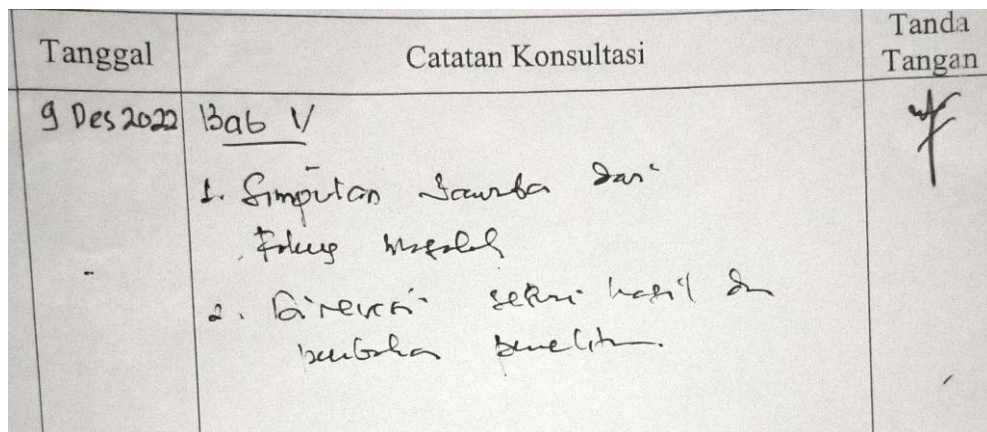 Tanggal
Catatan Konsultasi
Tanda
Tangan
9 Des 2022
Bab V
1. Simpulan Jawaban dari
Fokus Masalah
2. Direvisi sesuai hasil dan
penelitian.